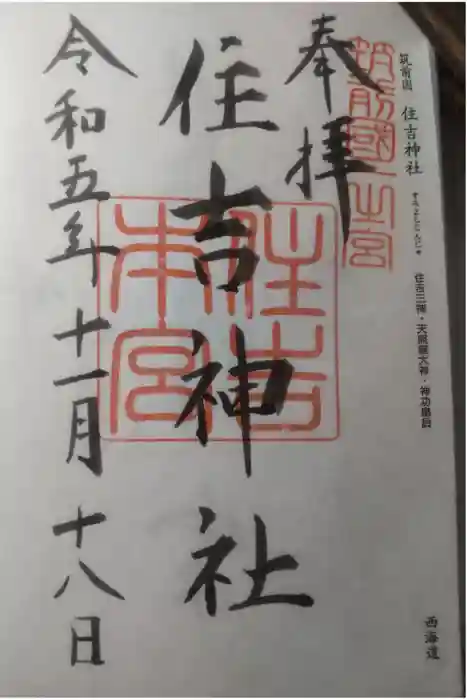 筑前国 住吉神社 すみよしじんじゃ
住吉三神・天照皇大神・神功皇后
西海道
筑前國一之宮
奉拝
住吉神社
住吉本宮
令和五年十一月十八日